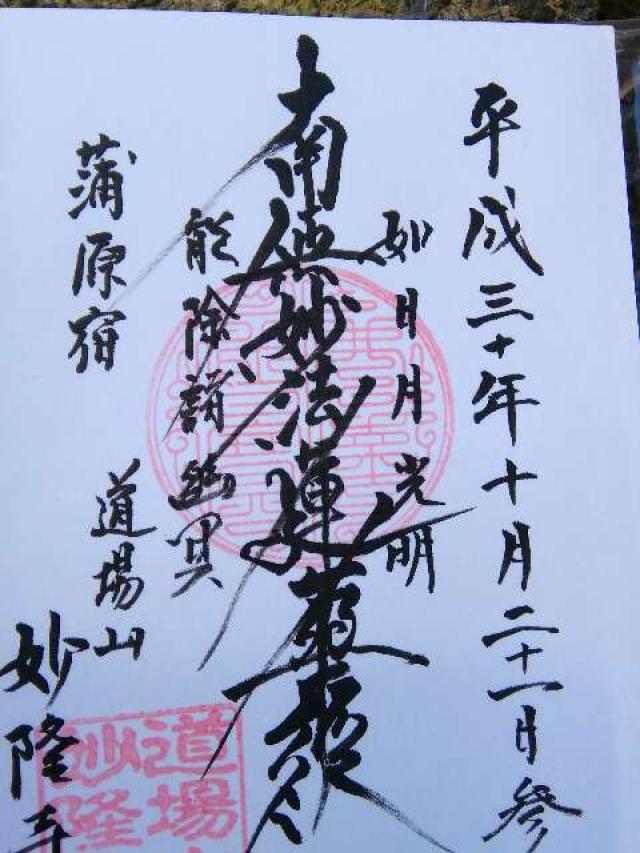 平成三十年十月二十一日参
如日月光明
南無妙法蓮華経
能除諸幽冥
蒲原宿
道場山
妙隆寺
道場
妙隆